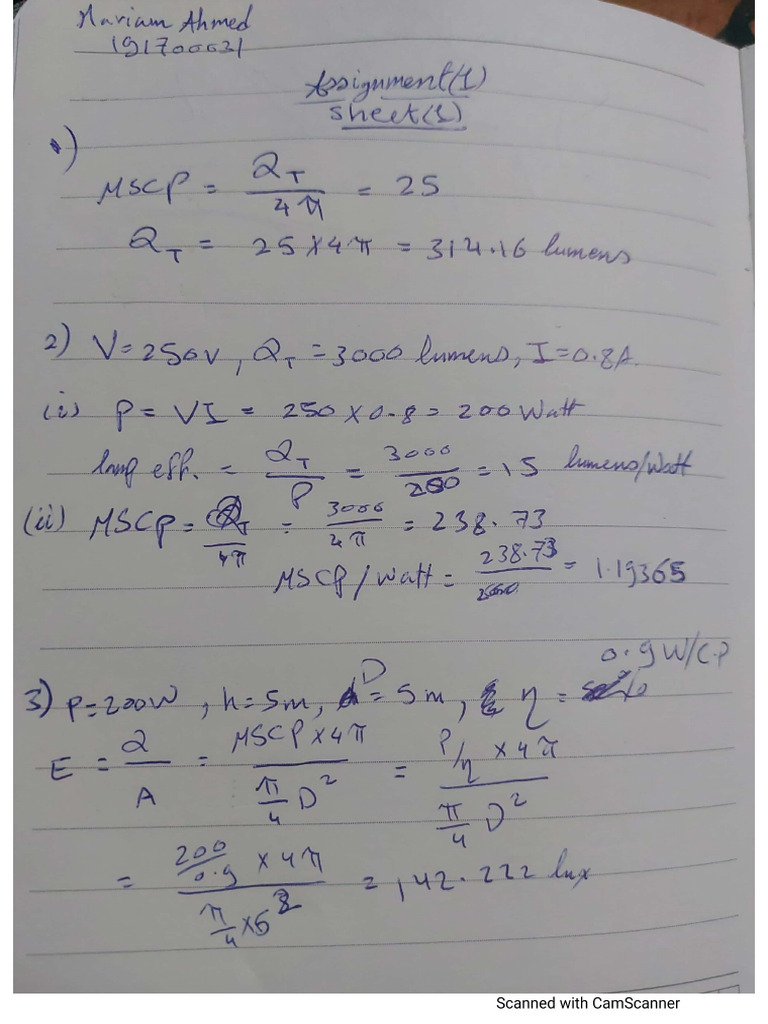 Mariam Ahmed
191700031
Assignment(1)
Sheet(1)
1)
MSCP = Q_T / 4π = 25
Q_T = 25 × 4π = 314.16 lumens
2) V=250V, Q_T = 3000 lumens, I=0.8A.
(i) P = VI = 250 × 0.8 = 200 Watt
lamp eff. = Q_T / P = 3000 / 200 = 15 lumens/watt
(ii) MSCP = Q_T / 4π = 3000 / 4π = 238.73
MSCP/watt = 238.73 / 200 = 1.19365
0.9 W/C.P
3) P=200W, h=5m, D=5m, η =
E = Q / A = MSCP × 4π / π/4 D² = P/η × 4π / π/4 D²
= 200/0.9 × 4π / π/4 × 5² = 142.222 lux
Scanned with CamScanner